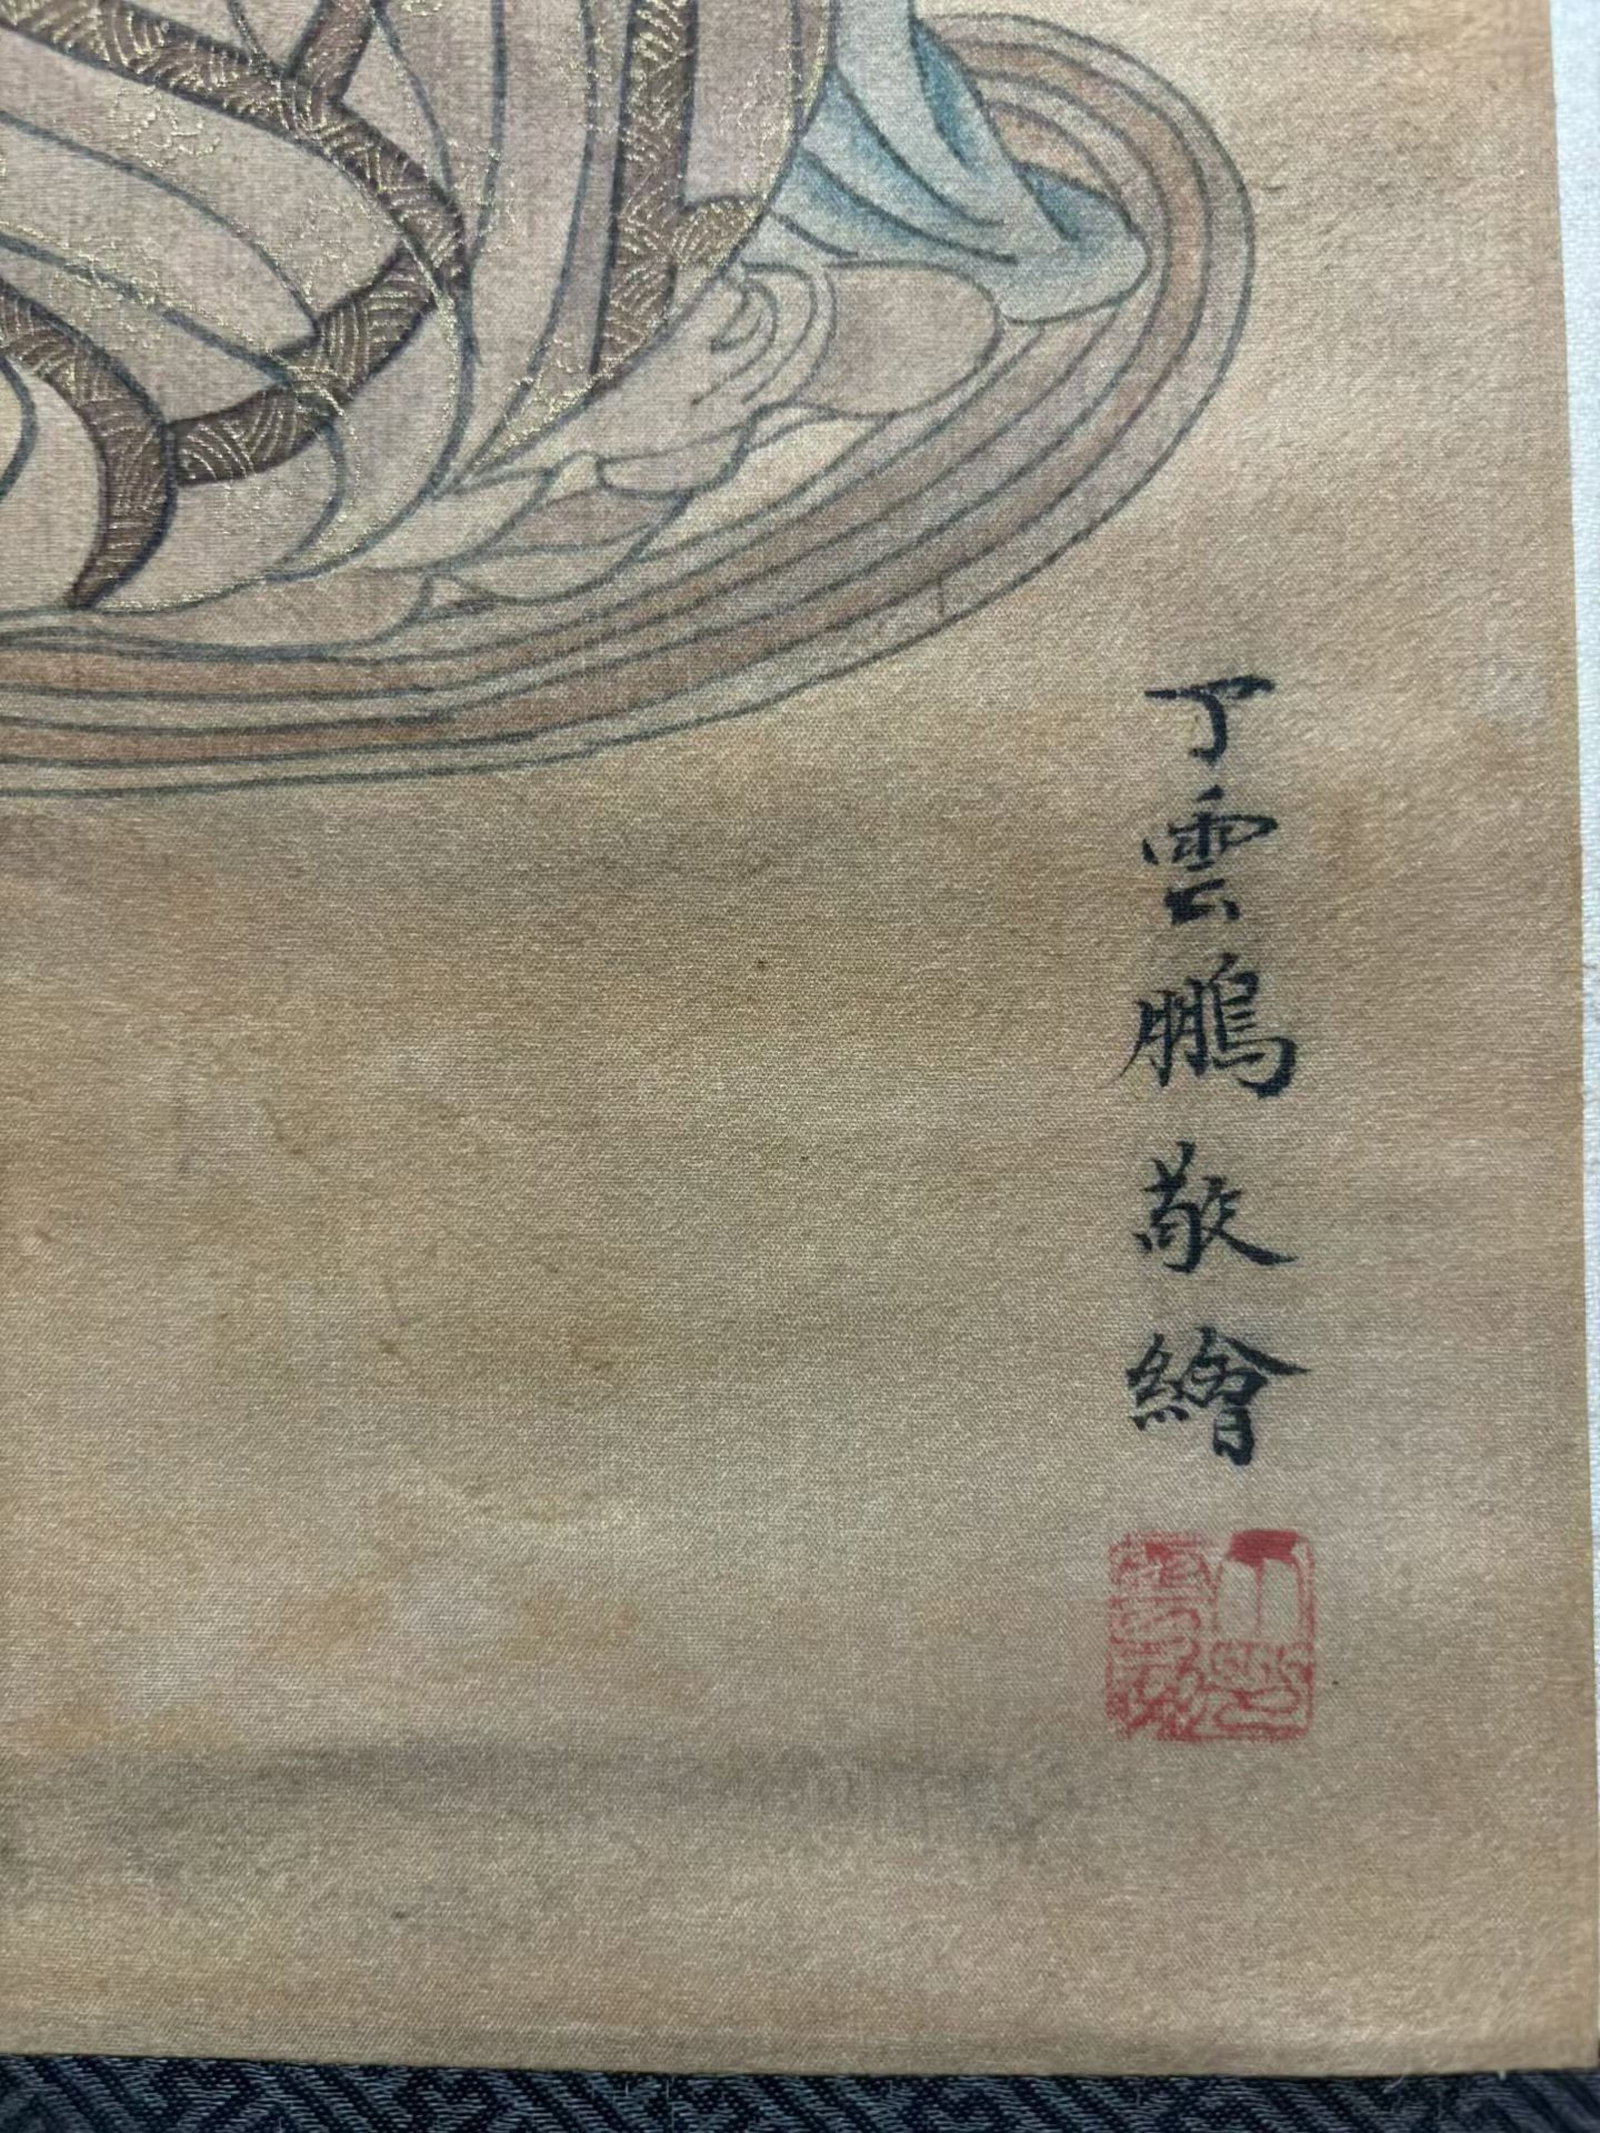 丁雲鵬敬繪